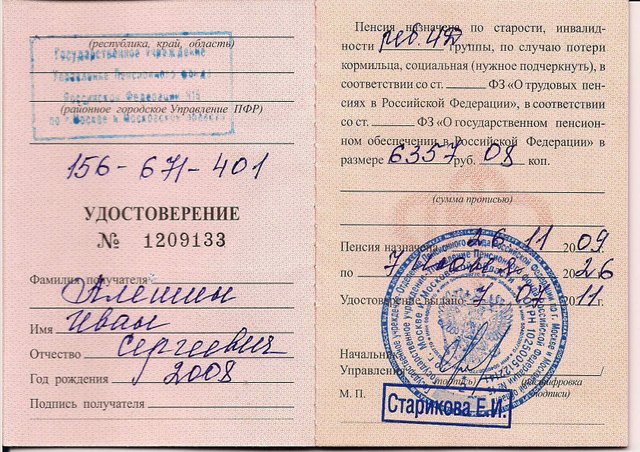 Государственное учреждение
(республика, край, область)
Управление Пенсионного фонда
Российской Федерации
(районное городское Управление ПФР)
по г. Москве и Московской области
156-671-401
УДОСТОВЕРЕНИЕ
№ 1209133
Фамилия получателя Алешин
Имя Иван
Отчество Сергеевич
Год рождения 2008
Подпись получателя
Пенсия назначена по старости, инвалид-
ности реб. группы, по случаю потери
кормильца, социальная (нужное подчеркнуть), в
соответствии со ст. ФЗ «О трудовых пен-
сиях в Российской Федерации», в соответствии
со ст. ФЗ «О государственном пенсион-
ном обеспечении в Российской Федерации» в
размере 6357 руб. 08 коп.
(сумма прописью)
Пенсия назначена 26 11 2009
по 7 2026
Удостоверение выдано 7 07 2011
Начальник
Управления
(подпись) (расшифровка подписи)
М. П.
Старикова Е.И.